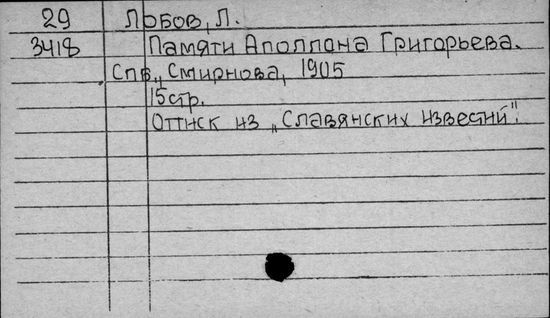 29 Лобов, Л.
3418 Памяти Аполлона Григорьева.
Спв., Смирнова, 1905
15стр.
Оттиск из „Славянских известий".